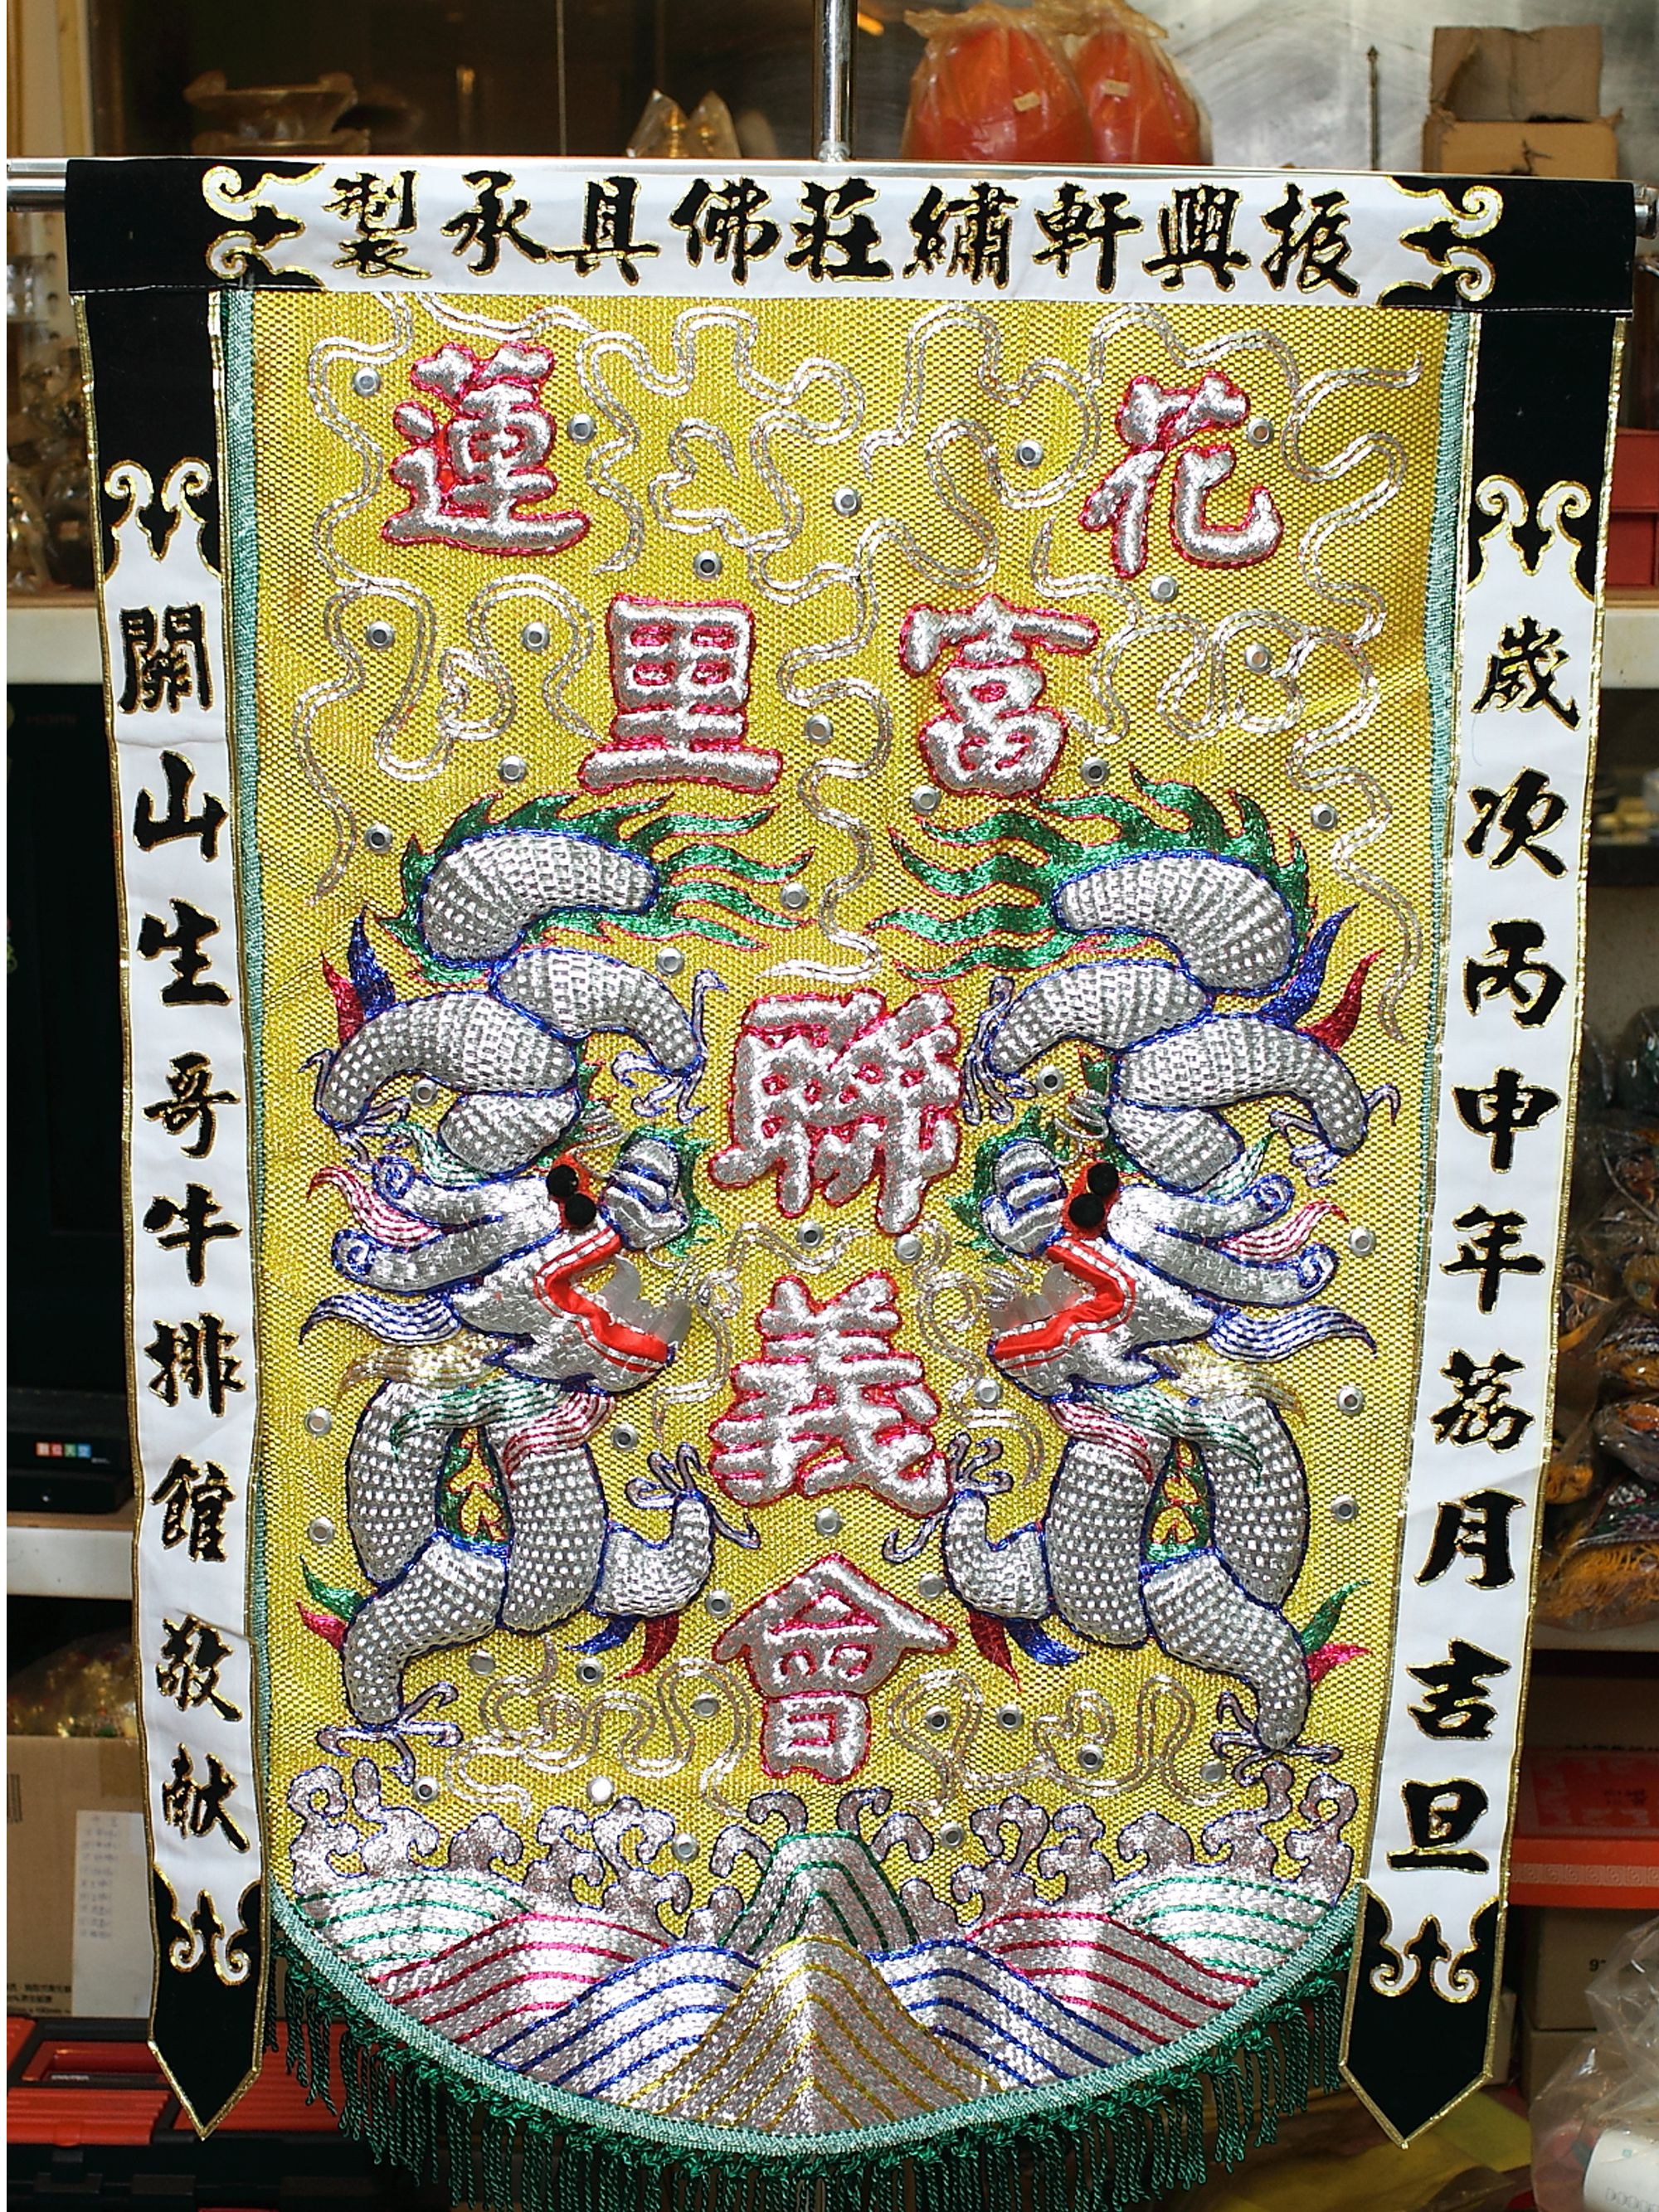 振興軒繡莊佛具承製
花蓮
富里
聯義會
歲次丙申年荔月吉旦
開山生哥牛排館敬献